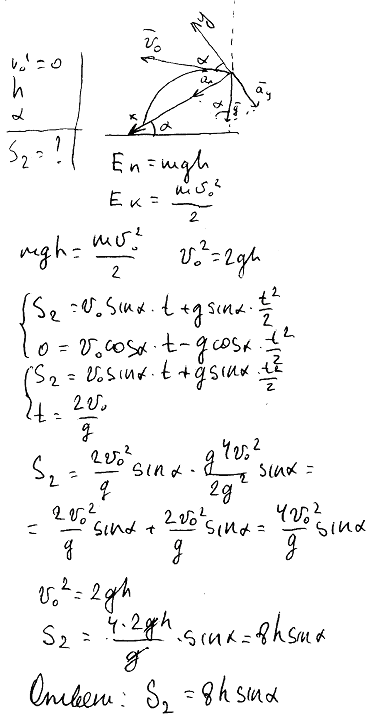 v₀' = 0
h
α
S₂ = ?
v̄₀
y
α
aₓ
α
ḡ
āᵧ
x
α
Eп = mgh
Eк = mv₀²/2
mgh = mv₀²/2 v₀² = 2gh
{ S₂ = v₀ sinα · t + g sinα · t²/2
0 = v₀ cosα · t - g cosα · t²/2
{ S₂ = v₀ sinα · t + g sinα · t²/2
t = 2v₀/g
S₂ = 2v₀²/g sinα · g4v₀²/2g² sinα =
= 2v₀²/g sinα + 2v₀²/g sinα = 4v₀²/g sinα
v₀² = 2gh
S₂ = 4·2gh/g · sinα = 8h sinα
Ответ: S₂ = 8h sinα